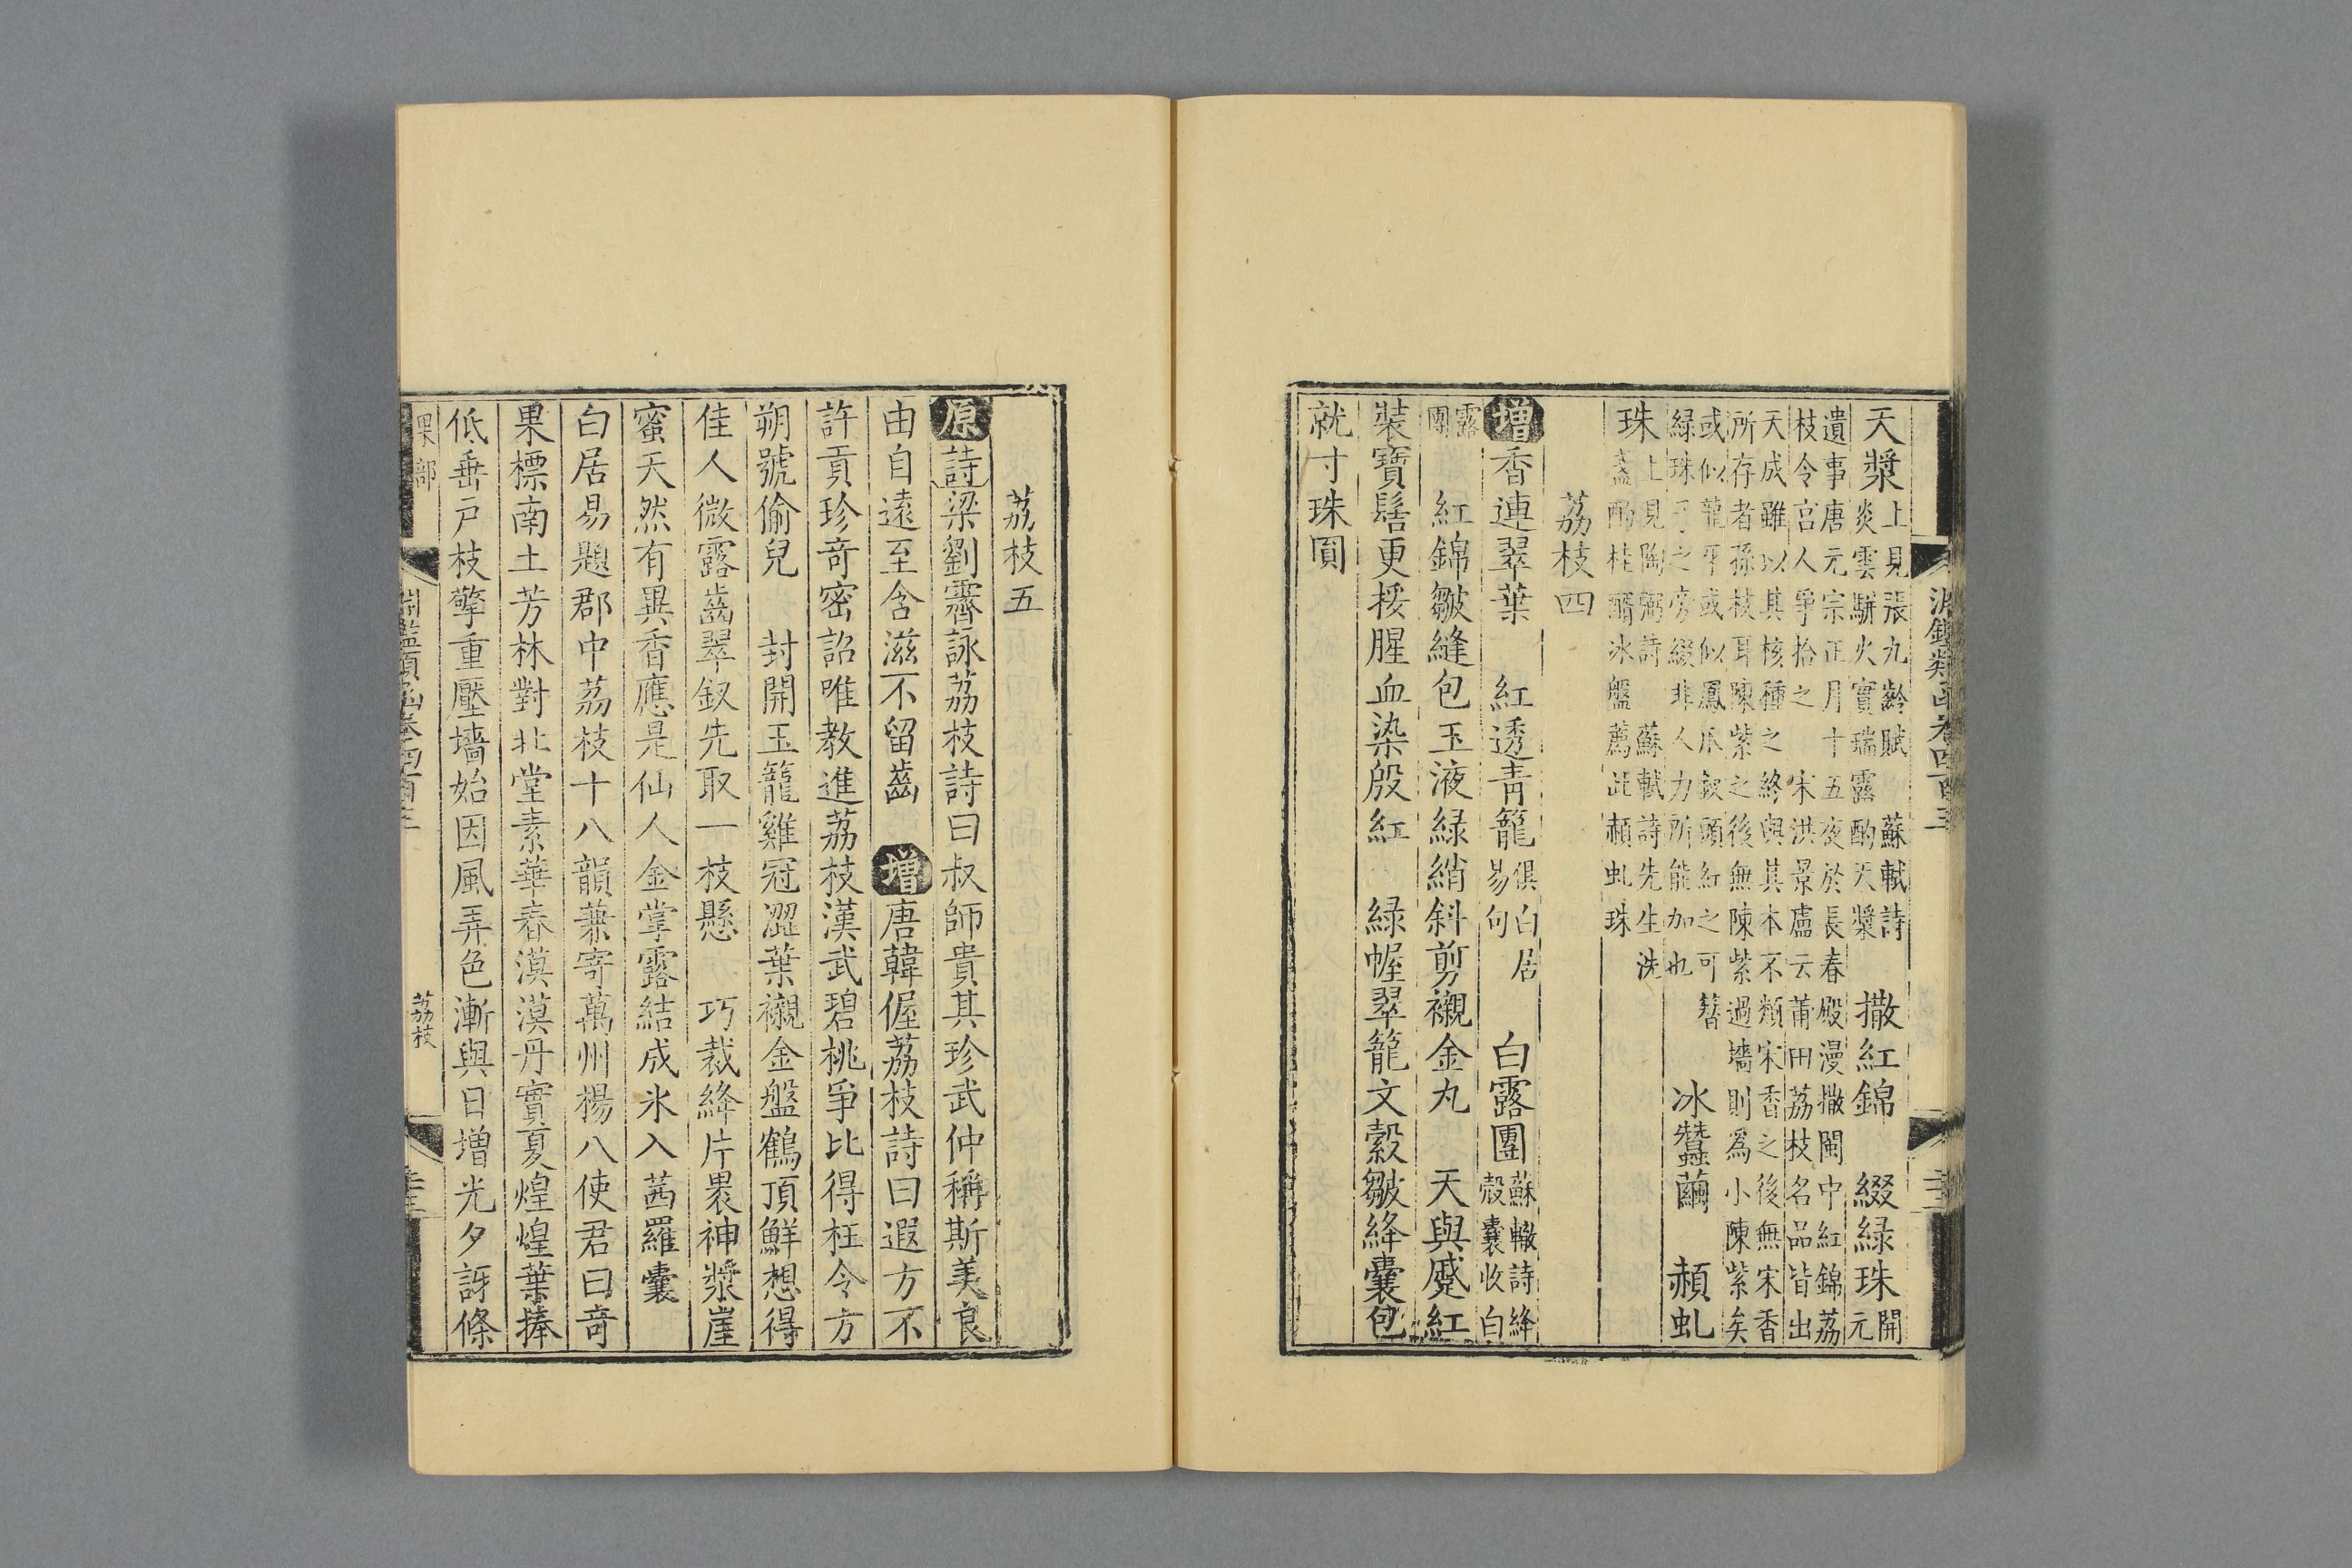 淵鑑類函卷四百三
天漿上見張九齡賦 蘇軾詩
炎雲駢火實瑞露酌天漿 撒紅錦 綴綠珠開
元
遺事唐元宗正月十五夜於長春殿漫撒閩中紅錦荔
枝令宮人爭拾之 宋洪景盧云莆田荔枝名品皆出
天成雖以其核種之終與其本不類宋香之後無宋香
所存者孫枝耳陳紫之後無陳紫過墻則爲小陳紫矣
或似龍牙或似鳳爪釵頭紅之可簪
綠珠子之旁綴非人力所能加也 冰蠶繭 赬虬
珠上見陶弼詩 蘇軾詩先生洗
盞酌桂醑冰盤薦此赬虬珠
荔枝四
增香連翠葉 紅透青籠俱白居
易句 白露團蘇轍詩絳
殼囊收白
露
團 紅錦皺縫包玉液綠綃斜剪襯金丸 天與蹙紅
裝寶髻更挼腥血染殷紅 綠幄翠籠文縠皺絳囊包
就寸珠圓
荔枝五
原詩梁劉霽詠荔枝詩曰叔師貴其珍武仲稱斯美良
由自遠至含滋不留齒 增唐韓偓荔枝詩曰遐方不
許貢珍奇密詔唯教進荔枝漢武碧桃爭比得枉令方
朔號偷兒 封開玉籠雞冠澀葉襯金盤鶴頂鮮想得
佳人微露齒翠釵先取一枝懸 巧裁絳片裹神漿崖
蜜天然有異香應是仙人金掌露結成氷入茜羅囊
白居易題郡中荔枝十八韻兼寄萬州楊八使君曰奇
果標南土芳林對北堂素華春漠漠丹實夏煌煌葉捧
低垂戸枝擎重壓墻始因風弄色漸與日增光夕訝條
果部 淵鑑類函卷四百三 荔枝